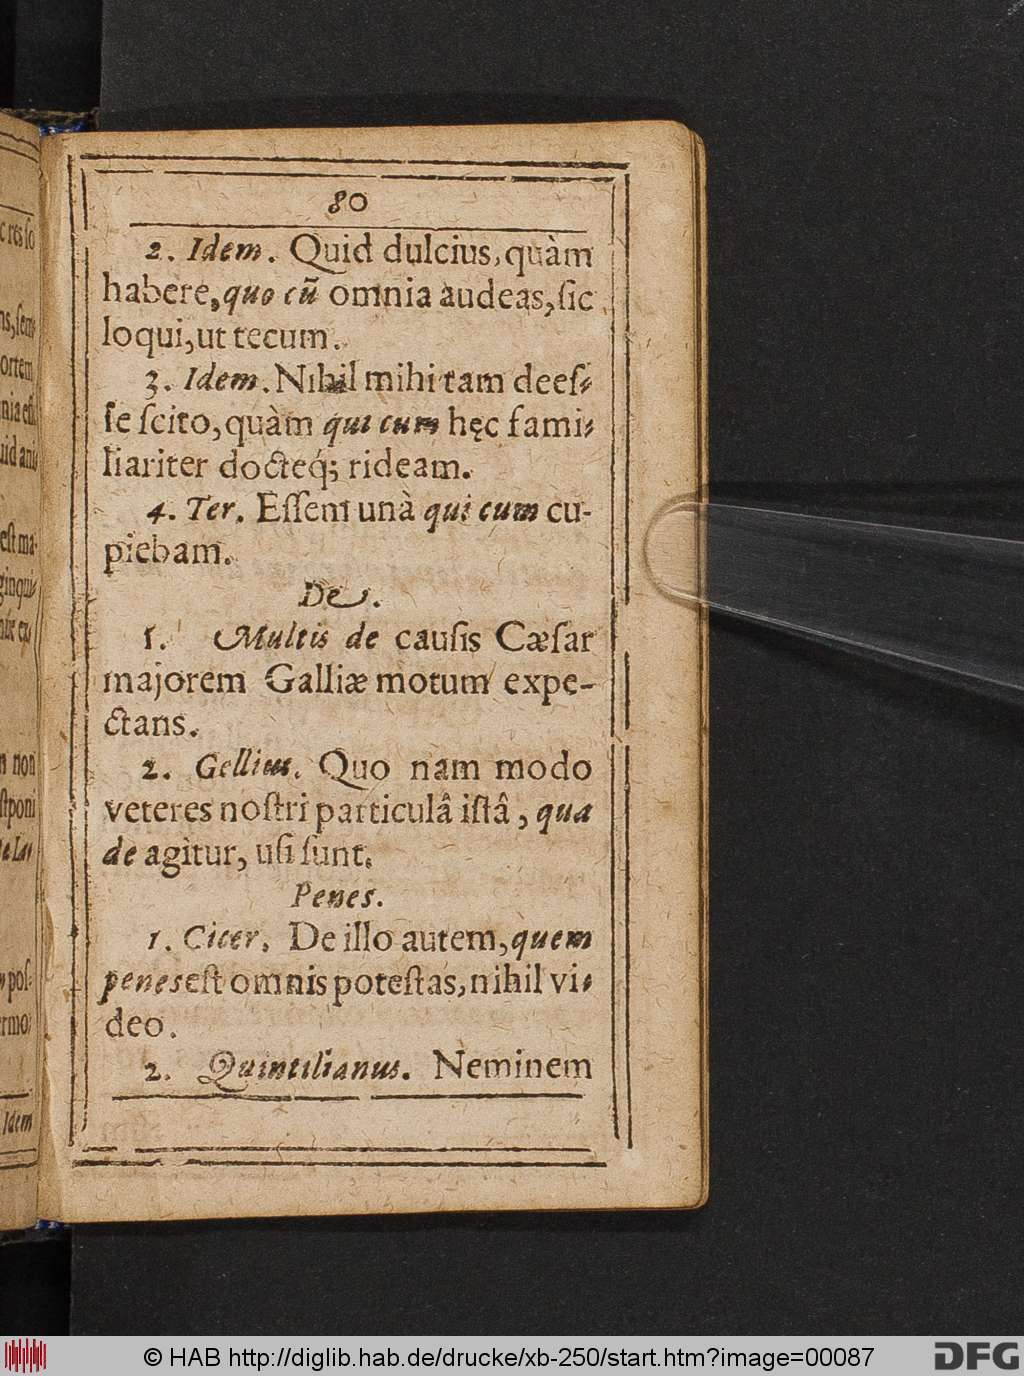 80
2. Idem. Quid dulcius, quàm
habere, quo cũ omnia audeas, ſic
loqui, ut tecum.
3. Idem. Nihil mihi tam deeſ-
ſe ſcito, quàm qui cum hęc fami-
liariter docteq́; rideam.
4. Ter. Eſſem unà qui cum cu-
piebam.
De.
1. Multis de cauſis Cæſar
majorem Galliæ motum expe-
ctans.
2. Gellius. Quo nam modo
veteres noſtri particulâ iſtâ, qua
de agitur, uſi ſunt.
Penes.
1. Cicer. De illo autem, quem
penes eſt omnis poteſtas, nihil vi-
deo.
2. Quintilianus. Neminem
Idem
© HAB http://diglib.hab.de/drucke/xb-250/start.htm?image=00087
DFG